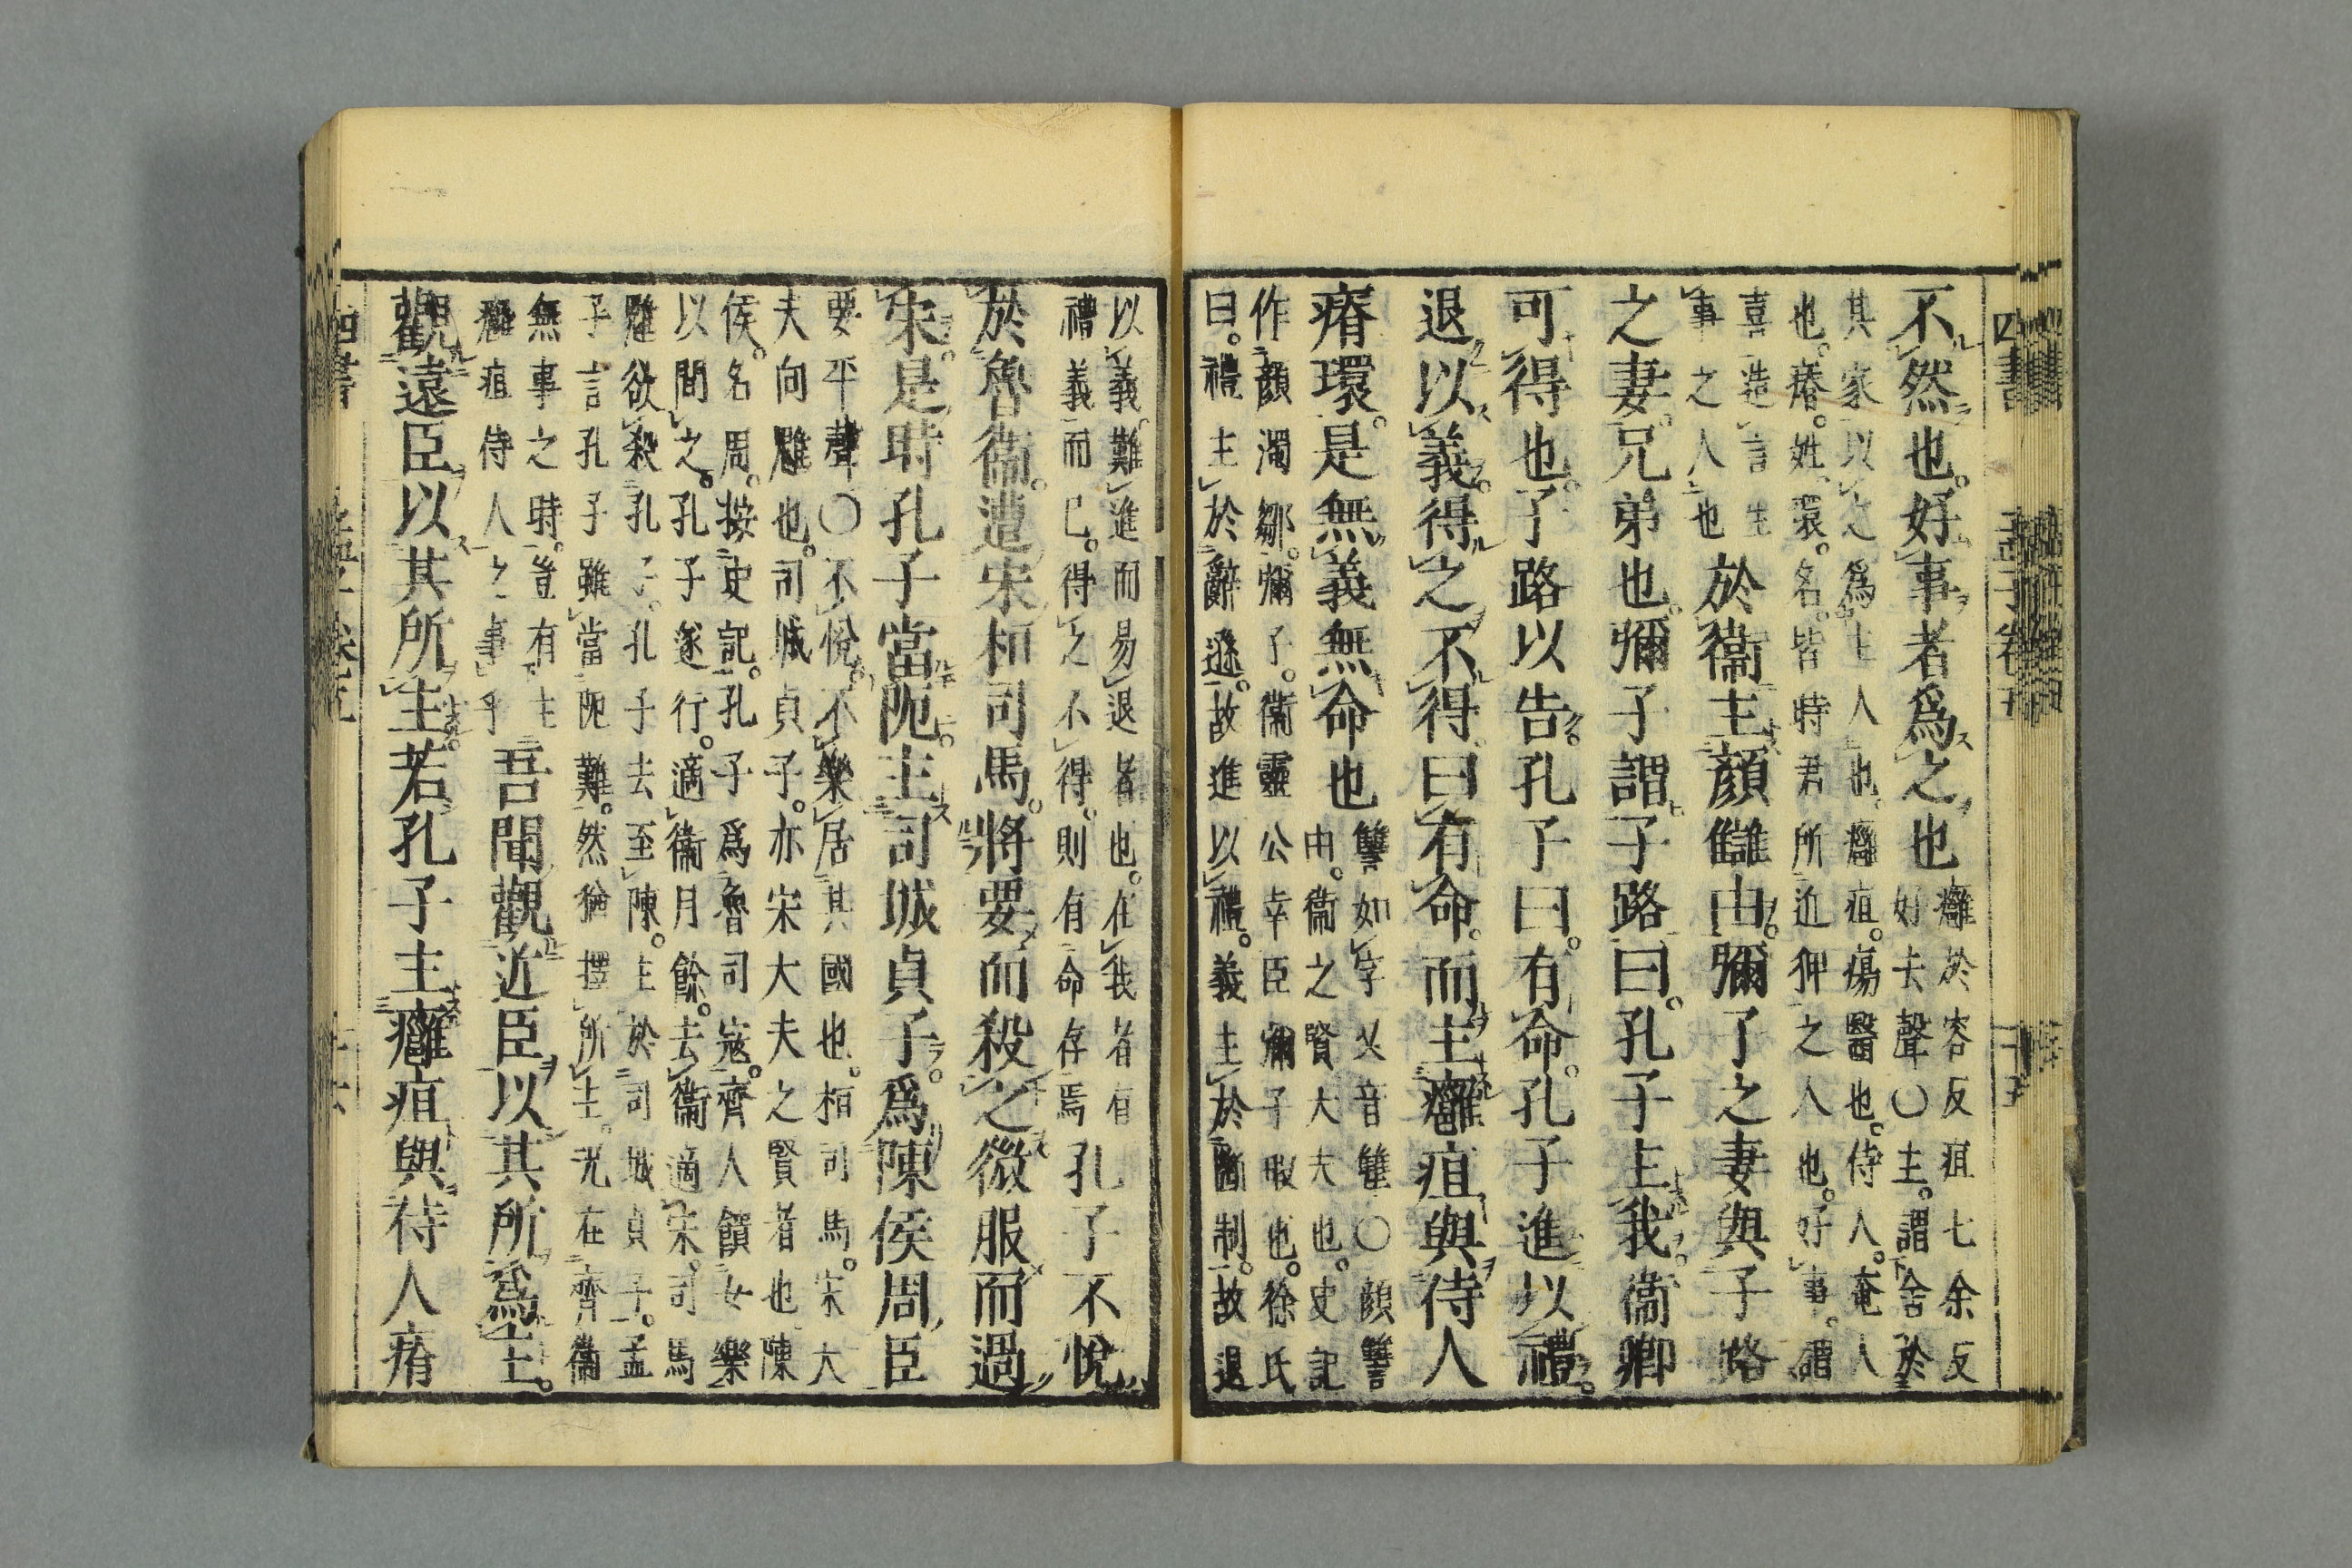 不然也。好事者爲之也 癰於容反疽七余反
好去聲〇主。謂舍於
其家以之爲主人也。癰疽。瘍醫也。侍人。奄人
也。瘠。姓。環。名。皆時君所近狎之人也。好事。謂
喜造言生
事之人也
於衞主顏讎由。彌子之妻與子路
之妻。兄弟也。彌子謂子路曰。孔子主我。衞卿
可得也。子路以告。孔子曰。有命。孔子進以禮。
退以義。得之不得。曰有命。而主癰疽與侍人
瘠環。是無義無命也
讐如字又音讎〇顏讐
由。衞之賢大夫也。史記
作顏濁鄒。彌子。衞靈公幸臣彌子瑕也。徐氏
曰。禮主於辭遜。故進以禮。義主於斷制。故退
以義。難進而易退者也。在我者有
禮義而已。得之不得。則有命存焉
孔子不悅
於魯衞。遭宋桓司馬。將要而殺之微服而過
宋。是時孔子當阨。主司城貞子。爲陳侯周臣
要平聲〇不悅。不樂居其國也。桓司馬。宋大
夫向魋也。司城貞子。亦宋大夫之賢者也陳
侯。名周。按史記。孔子爲魯司寇。齊人饋女樂
以間之。孔子遂行。適衞月餘。去衞適宋。司馬
魋欲殺孔子。孔子去至陳。主於司城貞子。孟
子言孔子雖當阨難。然猶擇所主。况在齊衞
無事之時。豈有主
癰疽侍人之事乎
吾聞觀近臣以其所爲主。
觀遠臣以其所主。若孔子主癰疽與侍人瘠
四書 孟子卷五 二十五